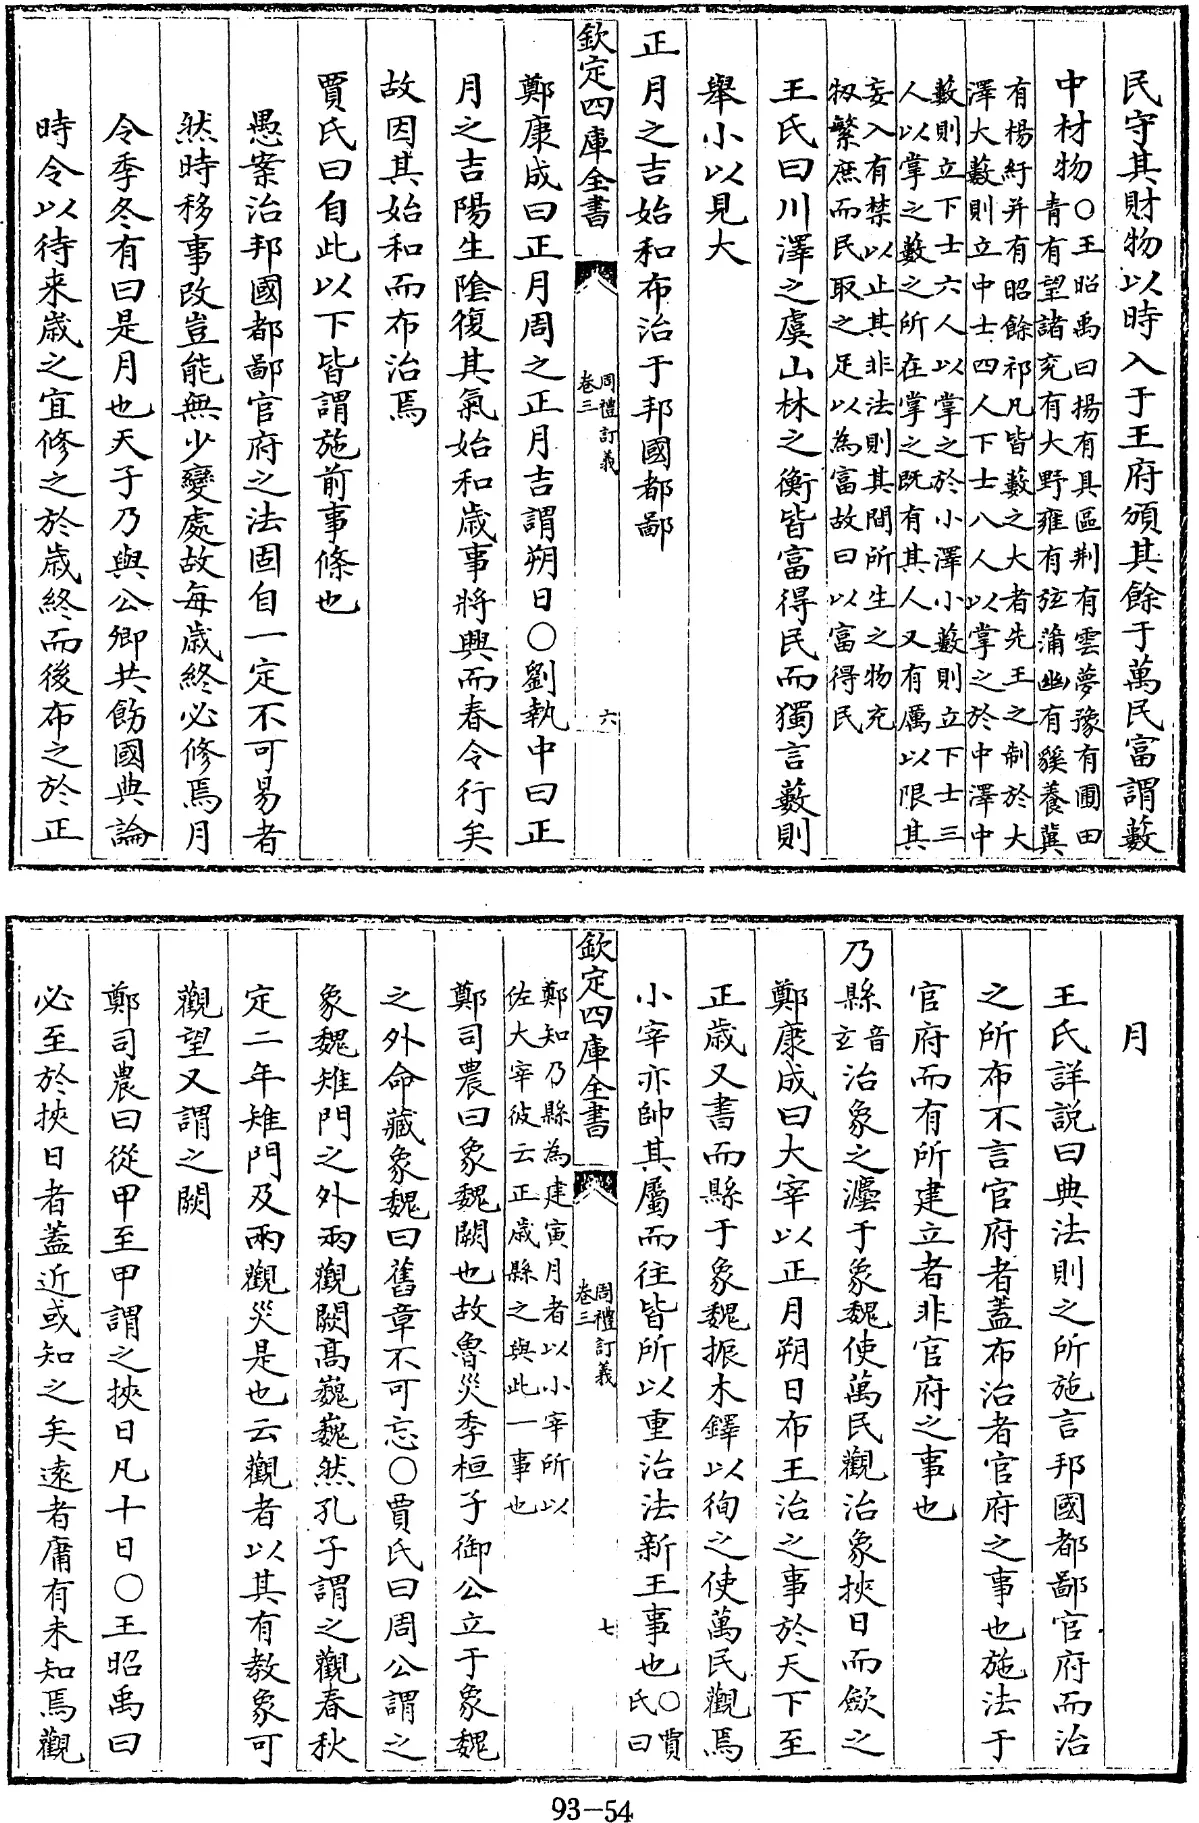 民守其財物以時入于王府頒其餘于萬民富謂藪
中材物〇王昭禹曰揚有具區荆有雲夢豫有圃田
青有望諸兖有大野雍有弦蒲幽有貕養冀
有楊紆并有昭餘祁凡皆藪之大者先王之制於大
澤大藪則立中士四人下士八人以掌之於中澤中
藪則立下士六人以掌之於小澤小藪則立下士三
人以掌之藪之所在掌之既有其人又有厲以限其
妄入有禁以止其非法則其間所生之物充
牣繁庶而民取之足以為富故曰以富得民
王氏曰川澤之虞山林之衡皆富得民而獨言藪則
舉小以見大
正月之吉始和布治于邦國都鄙
欽定四庫全書
周禮訂義
卷三
六
鄭康成曰正月周之正月吉謂朔日〇劉執中曰正
月之吉陽生陰復其氣始和歳事將興而春令行矣
故因其始和而布治焉
賈氏曰自此以下皆謂施前事條也
愚案治邦國都鄙官府之法固自一定不可易者
然時移事改豈能無少變處故每歳終必修焉月
令季冬有曰是月也天子乃與公卿共飭國典論
時令以待来歳之宜修之於歳終而後布之於正
月
王氏詳説曰典法則之所施言邦國都鄙官府而治
之所布不言官府者蓋布治者官府之事也施法于
官府而有所建立者非官府之事也
乃縣音玄治象之灋于象魏使萬民觀治象挾日而歛之
鄭康成曰大宰以正月朔日布王治之事於天下至
正歳又書而縣于象魏振木鐸以徇之使萬民觀焉
小宰亦帥其屬而往皆所以重治法新王事也〇賈氏曰
欽定四庫全書
周禮訂義
卷三
七
鄭知乃縣為建寅月者以小宰所以
佐大宰彼云正歳縣之與此一事也
鄭司農曰象魏闕也故魯災季桓子御公立于象魏
之外命藏象魏曰舊章不可忘〇賈氏曰周公謂之
象魏雉門之外兩觀闕高巍巍然孔子謂之觀春秋
定二年雉門及兩觀災是也云觀者以其有教象可
觀望又謂之闕
鄭司農曰從甲至甲謂之挾日凡十日〇王昭禹曰
必至於挾日者蓋近或知之矣遠者庸有未知焉觀
93-54